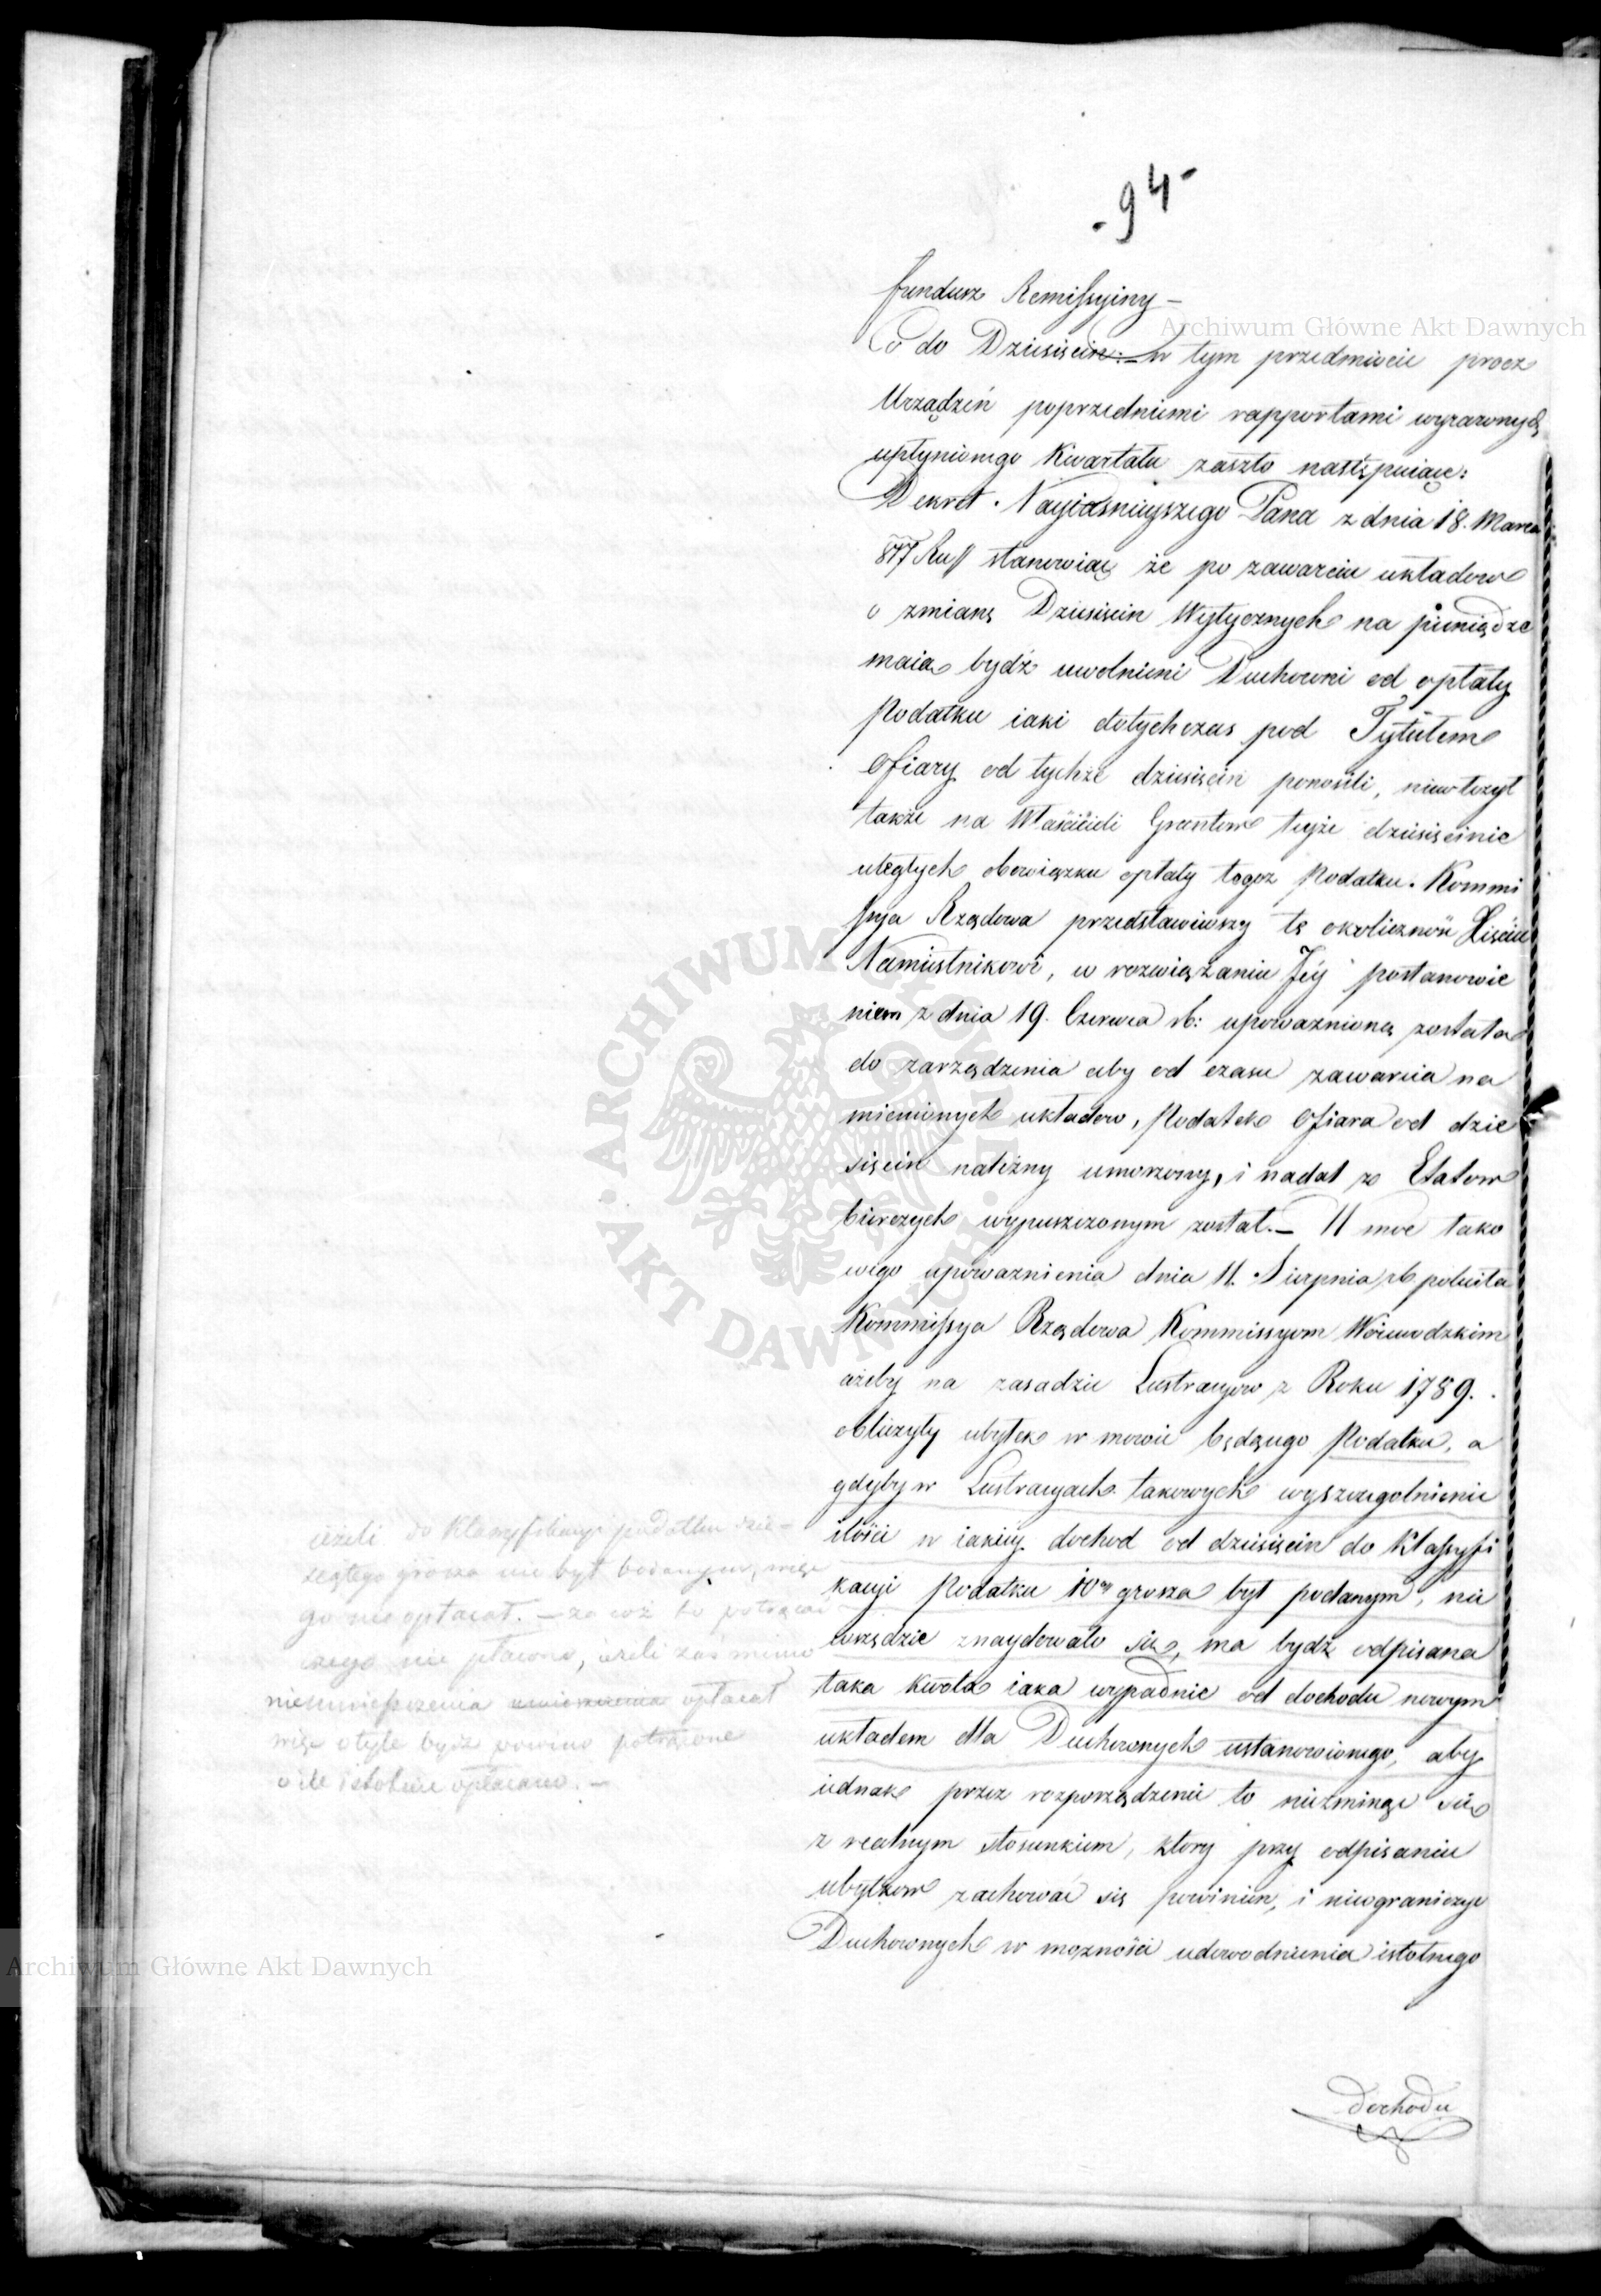 - 94 -
fundusz Remissyiny —
Co do Dziesięcin: — w tym przedmiocie procz
Urządzeń poprzedniemi rapportami wyrazonych
upłynionego Kwartału zaszło następuiące:
Dekret Nayiasnieyszego Pana z dnia 18. Marca
817 stanowiąc że po zawarciu układow
o zmianę Dziesięcin Wytycznych na pieniądze
maią bydź uwolnieni Duchowni od opłaty
Podatku iaki dotychczas pod Tytułem
Ofiary od tychże dziesięcin ponosili, niewłożył
także na Właścicieli Gruntow teyże dziesięcinie
uległych obowiązku opłaty tegoz Podatku. Kommi
ssya Rządowa przedstawiwszy tę okoliczność Xięciu
Namiestnikowi, w rozwiązaniu Jéy postanowie
niem z dnia 19. Czerwca rb: upoważnioną została
do zarządzenia aby od czasu zawarcia na
mienionych układow, Podatek Ofiara od dzie
sięcin należny umorzony, i nadal z Etatow
bierczych wypuszczonym został. — W moc tako
wego upoważnienia dnia 11. Sierpnia rb poleciła
Kommissya Rządowa Kommissyom Woiewodzkim
ażeby na zasadzie Lustracyow z Roku 1789.
obliczyły ubytek w mowie będącego Podatku, a
gdyby w Lustracyach takowych wyszczegolnienie
ilości w iakiey dochod od dziesięcin do Klassyfi
kacyi Podatku 10go grosza był podanym, nie
wszędzie znaydowało się, ma bydź odpisana
taka kwota iaka wypadnie od dochodu nowym
układem dla Duchownych ustanowionego, aby
iednak przez rozporządzenie to nieminąć się
z realnym stosunkiem, ktory przy odpisaniu
ubytkow zachować się powinien, i nieograniczyć
Duchownych w możności udowodnienia istotnego
dochodu
ieżeli do Klassyfikacyi podatku dzie-
siątego grosza nie był podanym, więc
go nie opłacał. — za coż to potrącać
czego nie płacono, ieżeli zaś mimo
nieumieszczenia opłacał
więc o tyle bydź powinno potrącone
o ile istotnie opłacano. —
Archiwum Główne Akt Dawnych
ARCHIWUM GŁÓWNE AKT DAWNYCH
Archiwum Główne Akt Dawnych